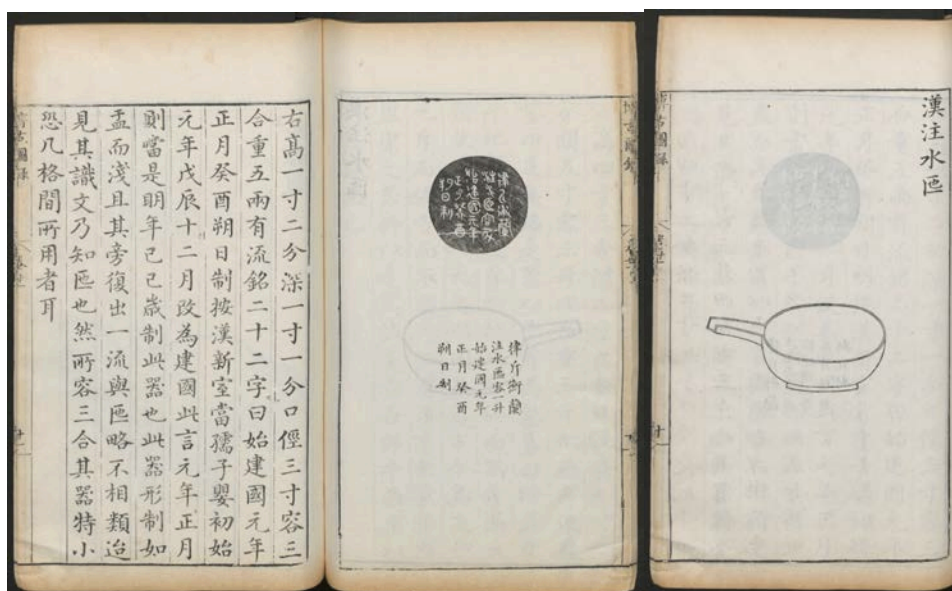 漢注水匜
博古圖錄
律斤衡蘭
注水匜容一升
始建國元年
正月癸酉
朔日制
右高一寸二分深一寸一分口徑三寸容三
合重五兩有流銘二十二字曰始建國元年
正月癸酉朔日制按漢新室當孺子嬰初始
元年戊辰十二月改為建國此言元年正月
則當是明年己巳歲制此器也此器形制如
盂而淺且其旁復出一流與匜略不相類迨
見其識文乃知匜也然所容三合其器特小
恐几格間所用者耳
博古圖錄